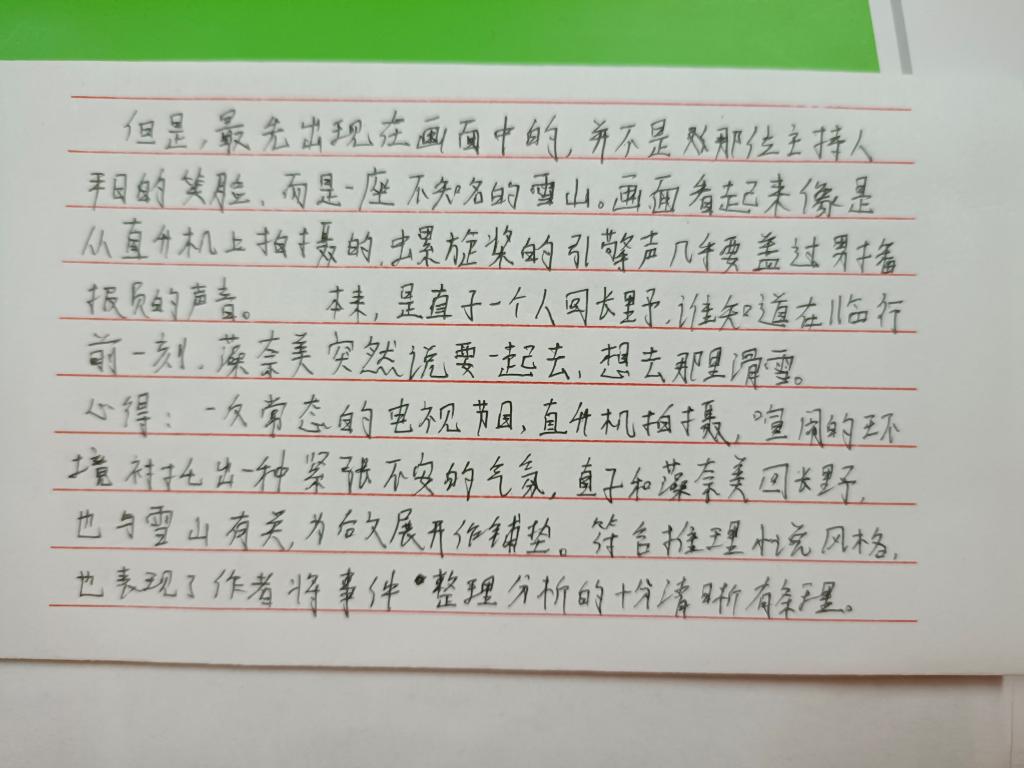 但是,最先出现在画面中的,并不是那位主持人
平日的笑脸、而是一座不知名的雪山。画面看起来像是
从直升机上拍摄的,螺旋桨的引擎声几乎要盖过男播
报员的声音。 本来,是直子一个人回长野,谁知道在临行
前一刻,藻奈美突然说要一起去,想去那里滑雪。
心得:一反常态的电视节目,直升机拍摄,喧闹的环
境衬托出一种紧张不安的气氛,直子和藻奈美回长野,
也与雪山有关,为后文展开作铺垫。符合推理小说风格,
也表现了作者将事件整理分析的十分清晰有条理。